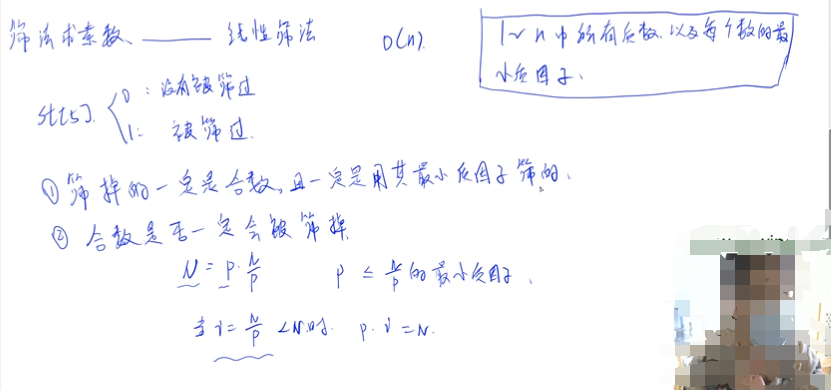 筛法求素数、—— 线性筛法 O(n).
1~n中所有质数.以及每个数的最
小质因子.
st[5]. { 0:没有被筛过
1: 被筛过.
① 筛掉的一定是合数,且一定是用其最小质因子筛的.
② 合数是否一定会被筛掉
N = p·N/p p ≤ N/p的最小质因子.
当 i = N/p < N时. p·i = N.